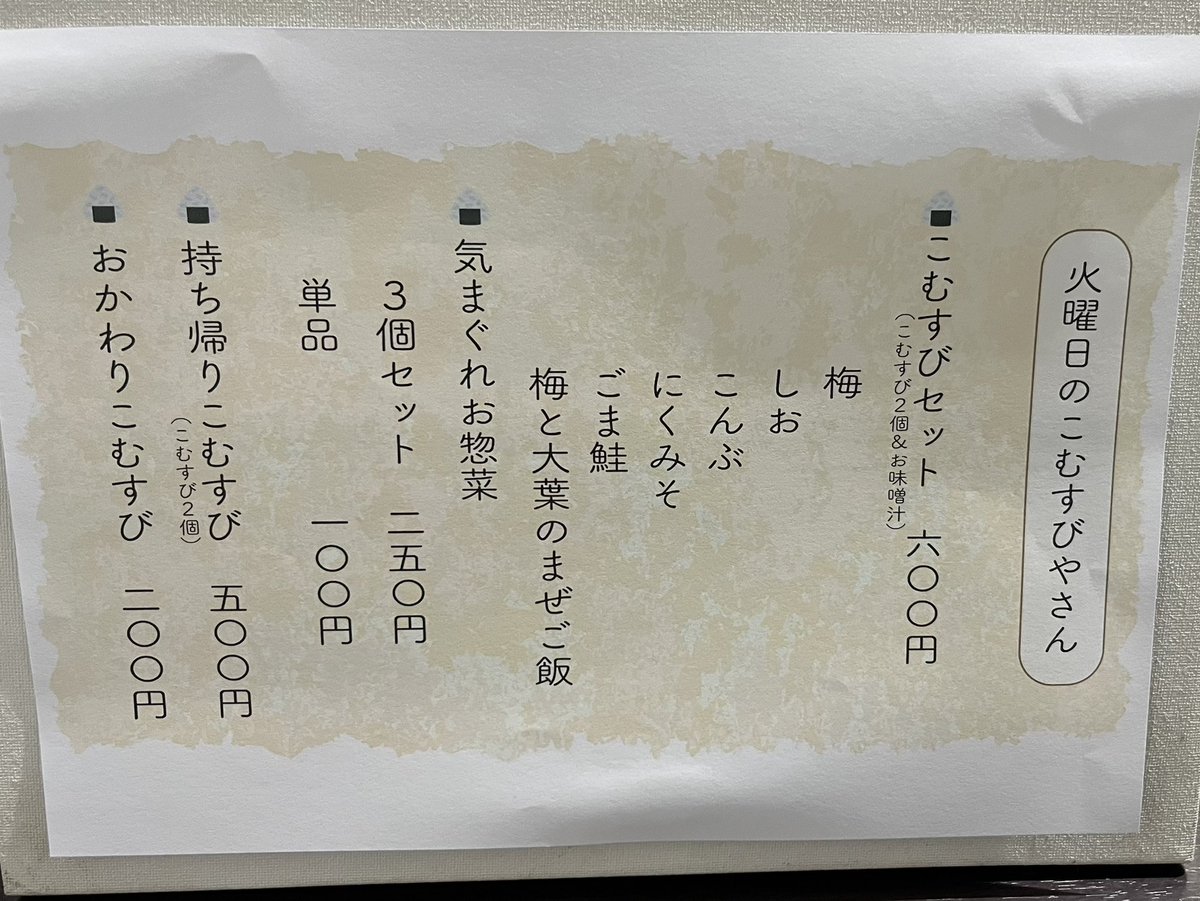 火曜日のこむすびやさん
こむすびセット 六〇〇円
（こむすび2個&お味噌汁）
梅
しお
こんぶ
にくみそ
ごま鮭
梅と大葉のまぜご飯
気まぐれお惣菜
3個セット 二五〇円
単品 一〇〇円
持ち帰りこむすび 五〇〇円
（こむすび2個）
おかわりこむすび 二〇〇円